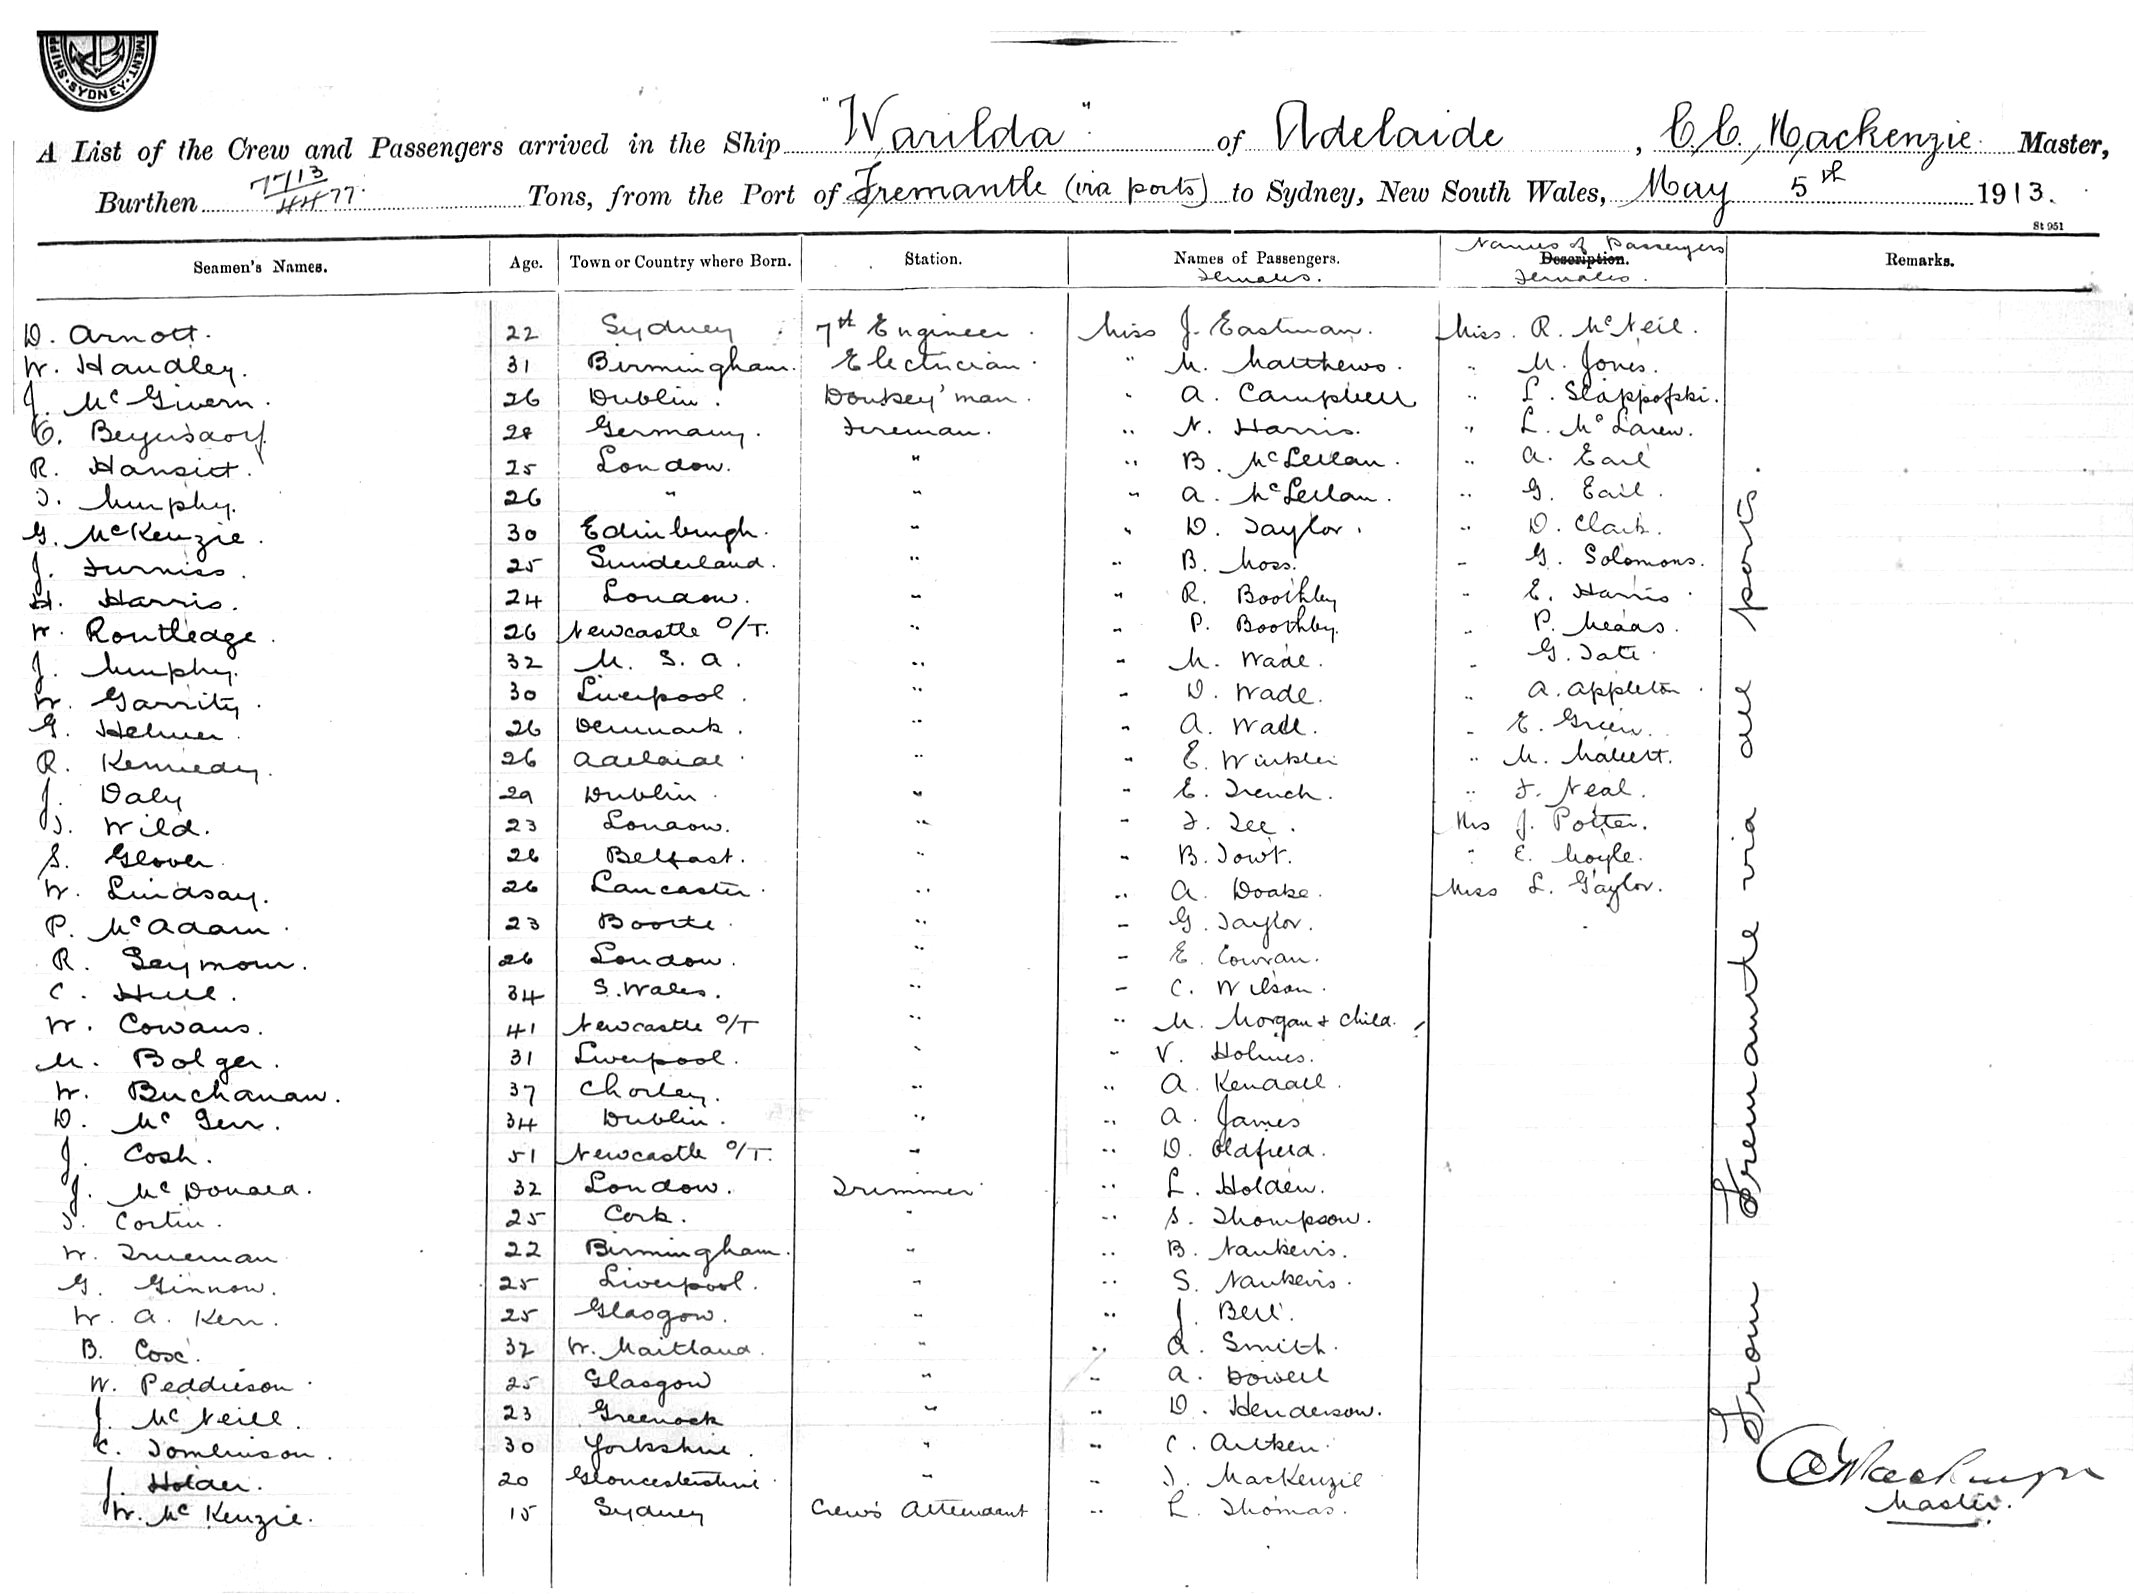 SHIPP MENT · SYDNEY ·
A List of the Crew and Passengers arrived in the Ship "Warilda" of Adelaide, C. C. Mackenzie. Master,
Burthen 7713/4477 Tons, from the Port of Fremantle (via ports) to Sydney, New South Wales, May 5th 1913.
St 951
Seamen's Names. Age. Town or Country where Born. Station. Names of Passengers. Females. Names of Passengers Description. Females. Remarks.
D. Arnott. 22 Sydney 7th Engineer. Miss J. Eastman. Miss. R. McNeil.
W. Handley. 31 Birmingham. Electrician. " M. Matthews. " M. Jones.
J. McGivern. 26 Dublin. Donkey'man. " A. Campbell " L. Slappofski.
C. Beyersdorf 28 Germany. Fireman. " N. Harris. " L. McLaren.
R. 25 London. " " B. McLellan. " A. Earl
T. Murphy. 26 " " " A. McLellan. " G. Earl.
G. McKenzie. 30 Edinburgh. " " D. Taylor. " D. Clark.
J. Furniss. 25 Sunderland. " " B. Moss. " G. Solomons.
H. Harris. 24 London. " " R. Boothby " E. Harris.
W. Routledge. 26 Newcastle O/T. " " P. Boothby. " P. Meaas.
J. Murphy. 32 U. S. A. " " M. Wade. " G. Tate.
W. Garrity. 30 Liverpool. " " D. Wade. " A. Appleton.
G. Helmer. 26 Denmark. " " A. Wade. " E. Green.
R. Kennedy. 26 Adelaide. " " E. Winkler " M.
J. Daly 29 Dublin. " " E. Trench. " F. Neal.
T. Wild. 23 London. " " F. Tee. Mrs J. Potter.
S. Glover. 26 Belfast. " " B. Towt. " E. Moyle.
W. Lindsay. 26 Lancaster. " " A. Doake. Miss L. Gaylor.
P. McAdam. 23 Bootle. " " G. Taylor.
R. Seymour. 26 London. " " E. Cowan.
C. Hull. 34 S. Wales. " " C. Wilson.
W. Cowans. 41 Newcastle O/T " " M. Morgan & Child.
M. Bolger. 31 Liverpool. " " V. Holmes.
W. Buchanan. 37 Chorley. " " A. Kendall.
D. Mc 34 Dublin. " " A. James
J. Cosh. 51 Newcastle O/T. " " D. Oldfield.
J. McDonald. 32 London. Trimmer " L. Holden.
T. 25 Cork. " " S. Thompson.
W. Trueman 22 Birmingham. " " B. Nankervis.
G. Ginnow. 25 Liverpool. " " S. Nankervis.
W. A. Kerr. 25 Glasgow. " " J. Bell.
B. Cox. 32 W. Maitland. " " A. Smith.
W. Peddieson 25 Glasgow " " A. Dowell
J. McNeill. 23 Greenock " " D. Henderson.
C. Tomlinson. 30 Yorkshire. " " C. Aitken.
J. Holder. 20 Gloucestershire " " J. MacKenzie
W. McKenzie. 15 Sydney Crew's Attendant " L. Thomas.
From Fremantle via all ports.
CC Mackenzie
Master.